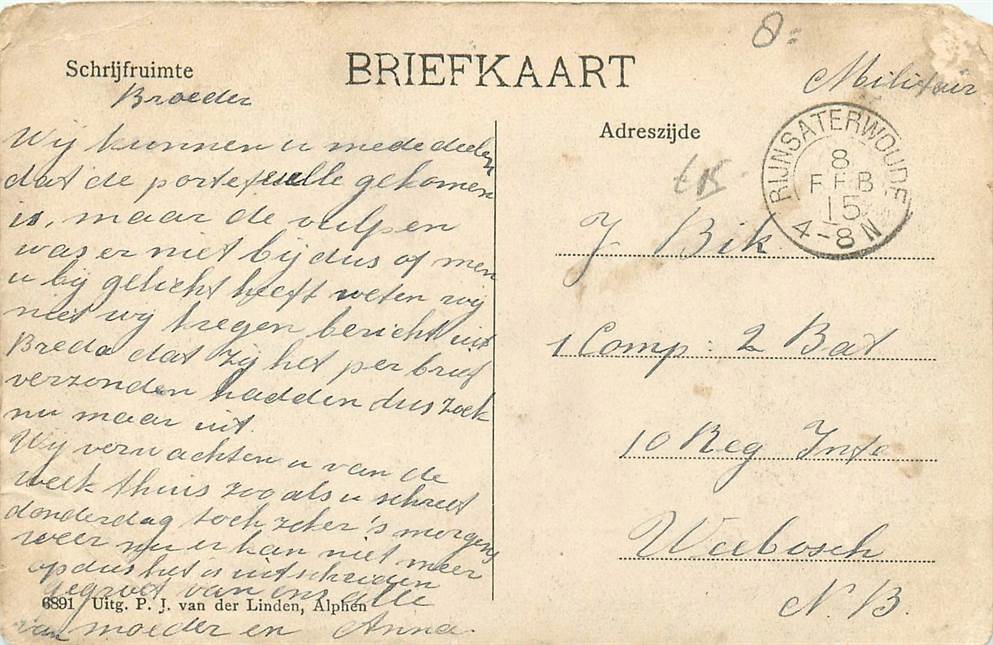 8=
Schrijfruimte
BRIEFKAART
Militair
Broeder
Adreszijde
Wij kunnen u mededeelen
dat de portefeulle gekomen
is, maar de vulpen
was er niet bij dus of men
u bij gelicht heeft weten wij
niet wij kregen bericht uit
Breda dat zij het per brief
verzonden hadden dus zoek
nu maar uit.
Wij verwachten u van de
week thuis zoo als u schreef
donderdag toch zeker 's morgens
weer nu er kan niet meer
op dus het is uitscheiden
gegroet van ons alle
van moeder en Anna.
RIJNSATERWOUDE
8
FEB
15
4-8N
J Bik
1 Comp: 2 Bat
10 Reg Inft
Weebosch
N.B.
6891 Uitg. P. J. van der Linden, Alphen